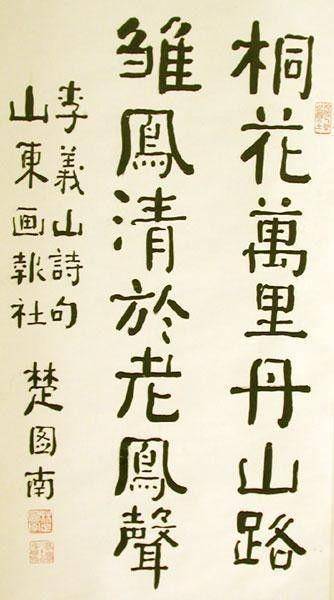 桐花萬里丹山路
雛鳳清於老鳳聲
李義山詩句
山東画報社
楚图南